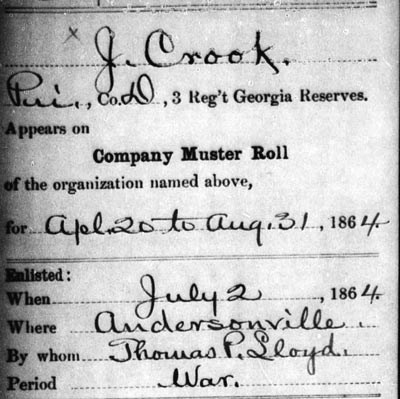 x
J. Crook.
Pri., Co. D, 3 Reg't Georgia Reserves.
Appears on
Company Muster Roll
of the organization named above,
for Apl. 20 to Aug. 31, 1864.
Enlisted:
When July 2, 1864.
Where Andersonville.
By whom Thomas P. Lloyd.
Period War.